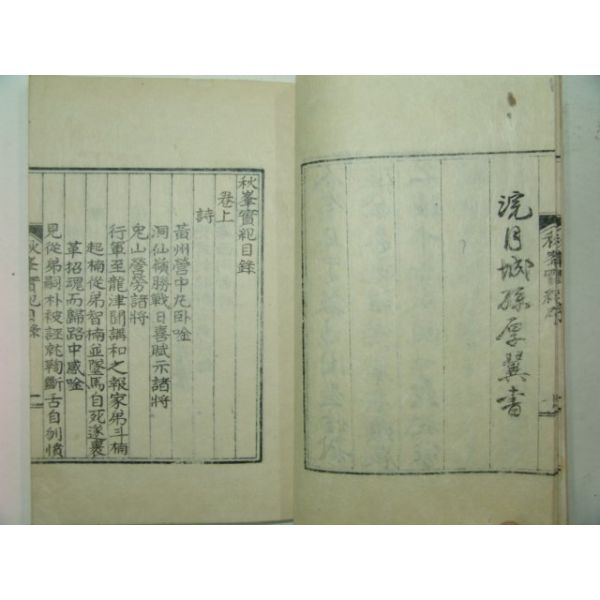 浣月城孫厚翼書
秋峯實紀
秋峯實紀目錄
卷上
詩
黃州營中允臥唫
洞仙嶺勝戰日喜賦示諸將
兎山營勞諸將
行軍至龍津聞講和之報家弟斗楠
起楠從弟智楠並墜馬自死遂裹
革招魂而歸路中感唫
見從弟嗣朴被誣就鞫斷舌自刎憤
秋峯實紀目錄
一